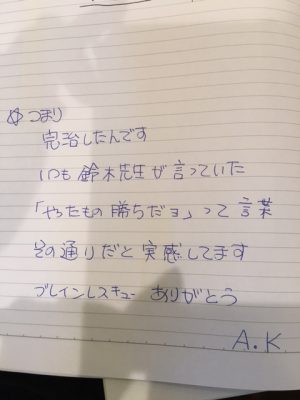 ☆つまり
完治したんです
いつも鈴木先生が言っていた
「やったもの勝ちだョ」って言葉
その通りだと実感してます
ブレインレスキューありがとう
A.K